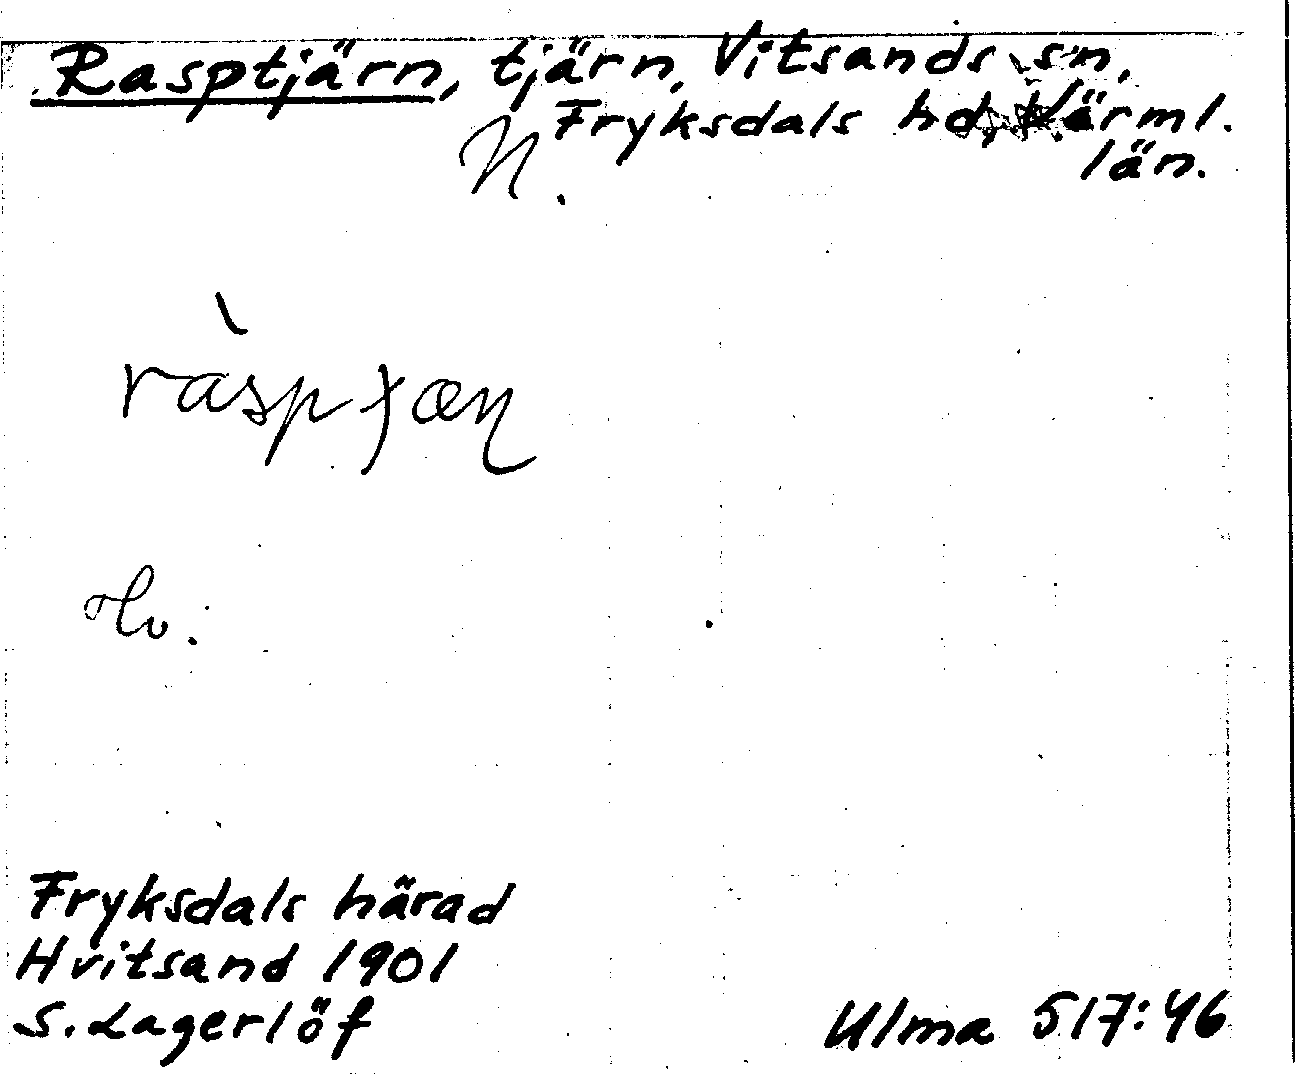 Rasptjärn, tjärn, Vitsands sn,
Fryksdals hd, Värml.
N. län.
ràspʄæɳ
Fryksdals härad
Hvitsand 1901
S. Lagerlöf
Ulma 517:46